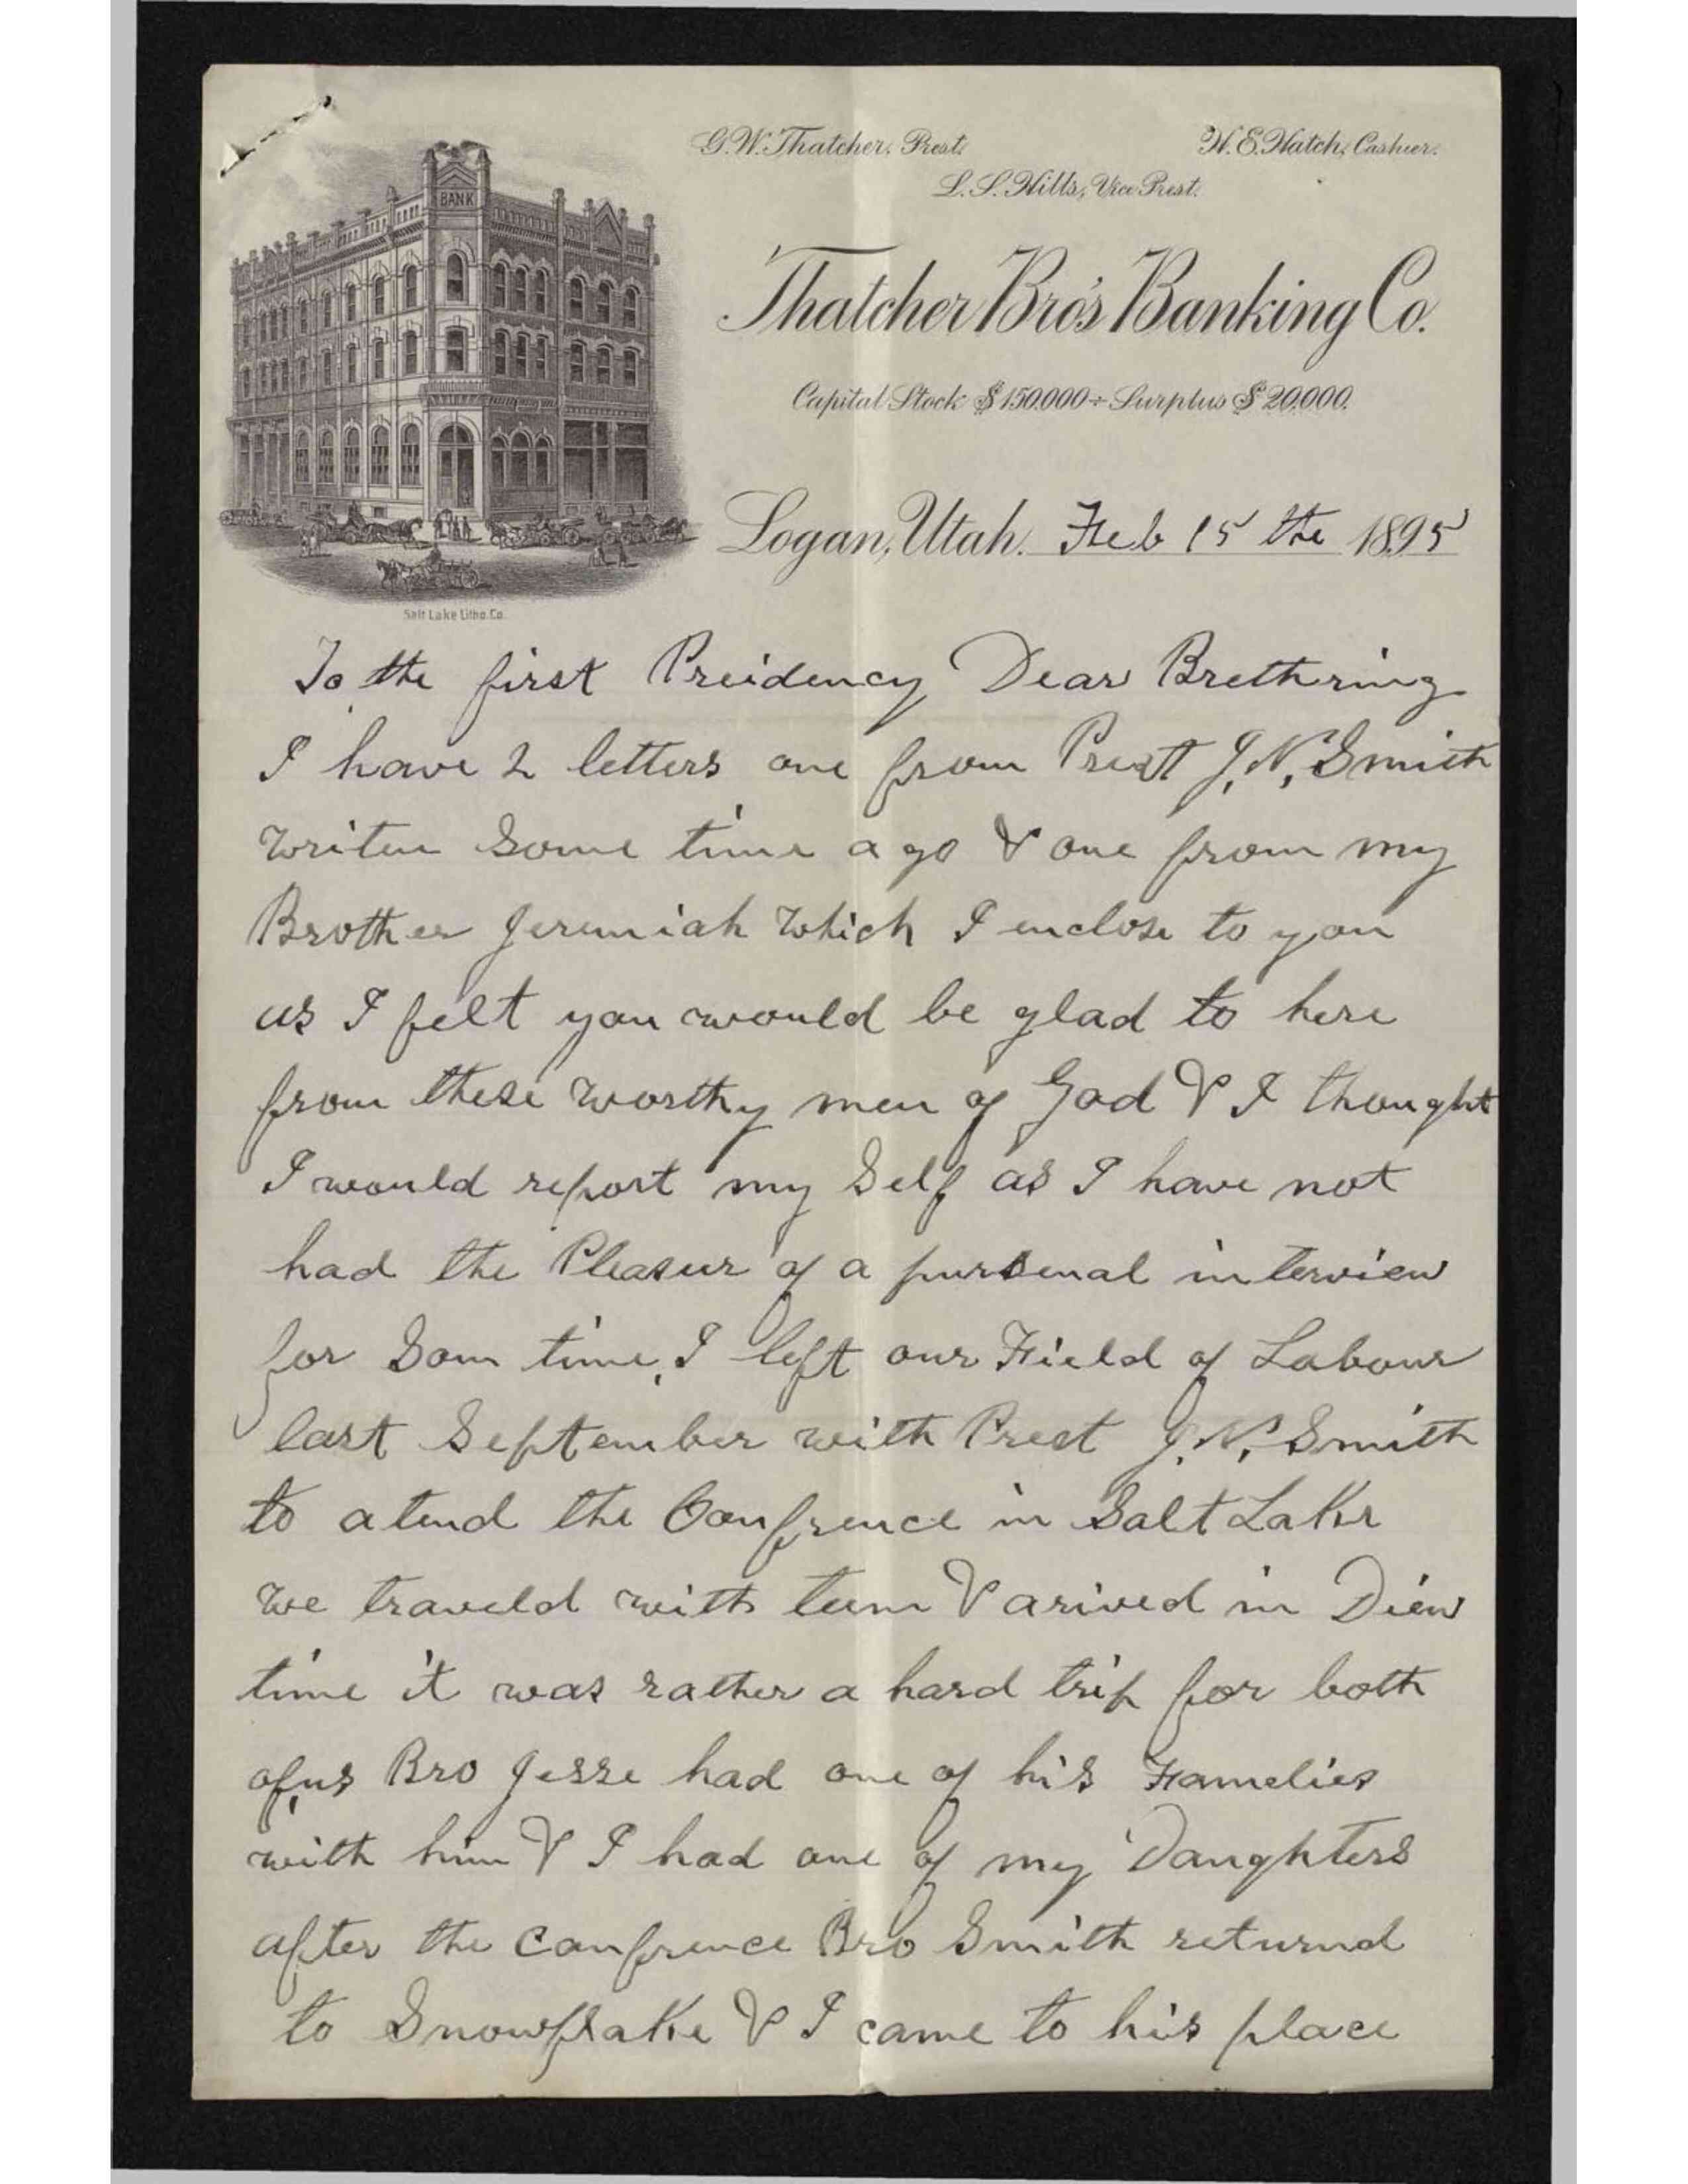 BANK
G.W. Thatcher, Prest.
H.E. Hatch, Cashier.
L.S. Hills, Vice Prest.
Thatcher Bro's Banking Co.
Capital Stock $150.000 ÷ Surplus $20.000.
Logan, Utah. Feb 15 the 1895
Salt Lake Litho. Co.
To the first Preidency Dear Brethring
I have 2 letters one from Prest J. N. Smith
writen Some time a go & one from my
Brother Jeremiah which I enclose to you
as I felt you would be glad to here
from these worthy men of God & I thought
I would report my Self as I have not
had the Pleasur of a pursenal interview
for Som time, I left our Field of Labour
last September with Prest J. N. Smith
to atend the Confrence in Salt Lake
we traveld with teem & arived in Diew
time it was rather a hard trip for both
of us Bro Jesse had one of his Famelies
with him & I had one of my Daughters
after the Confrence Bro Smith returnd
to Snowflake & I came to his place